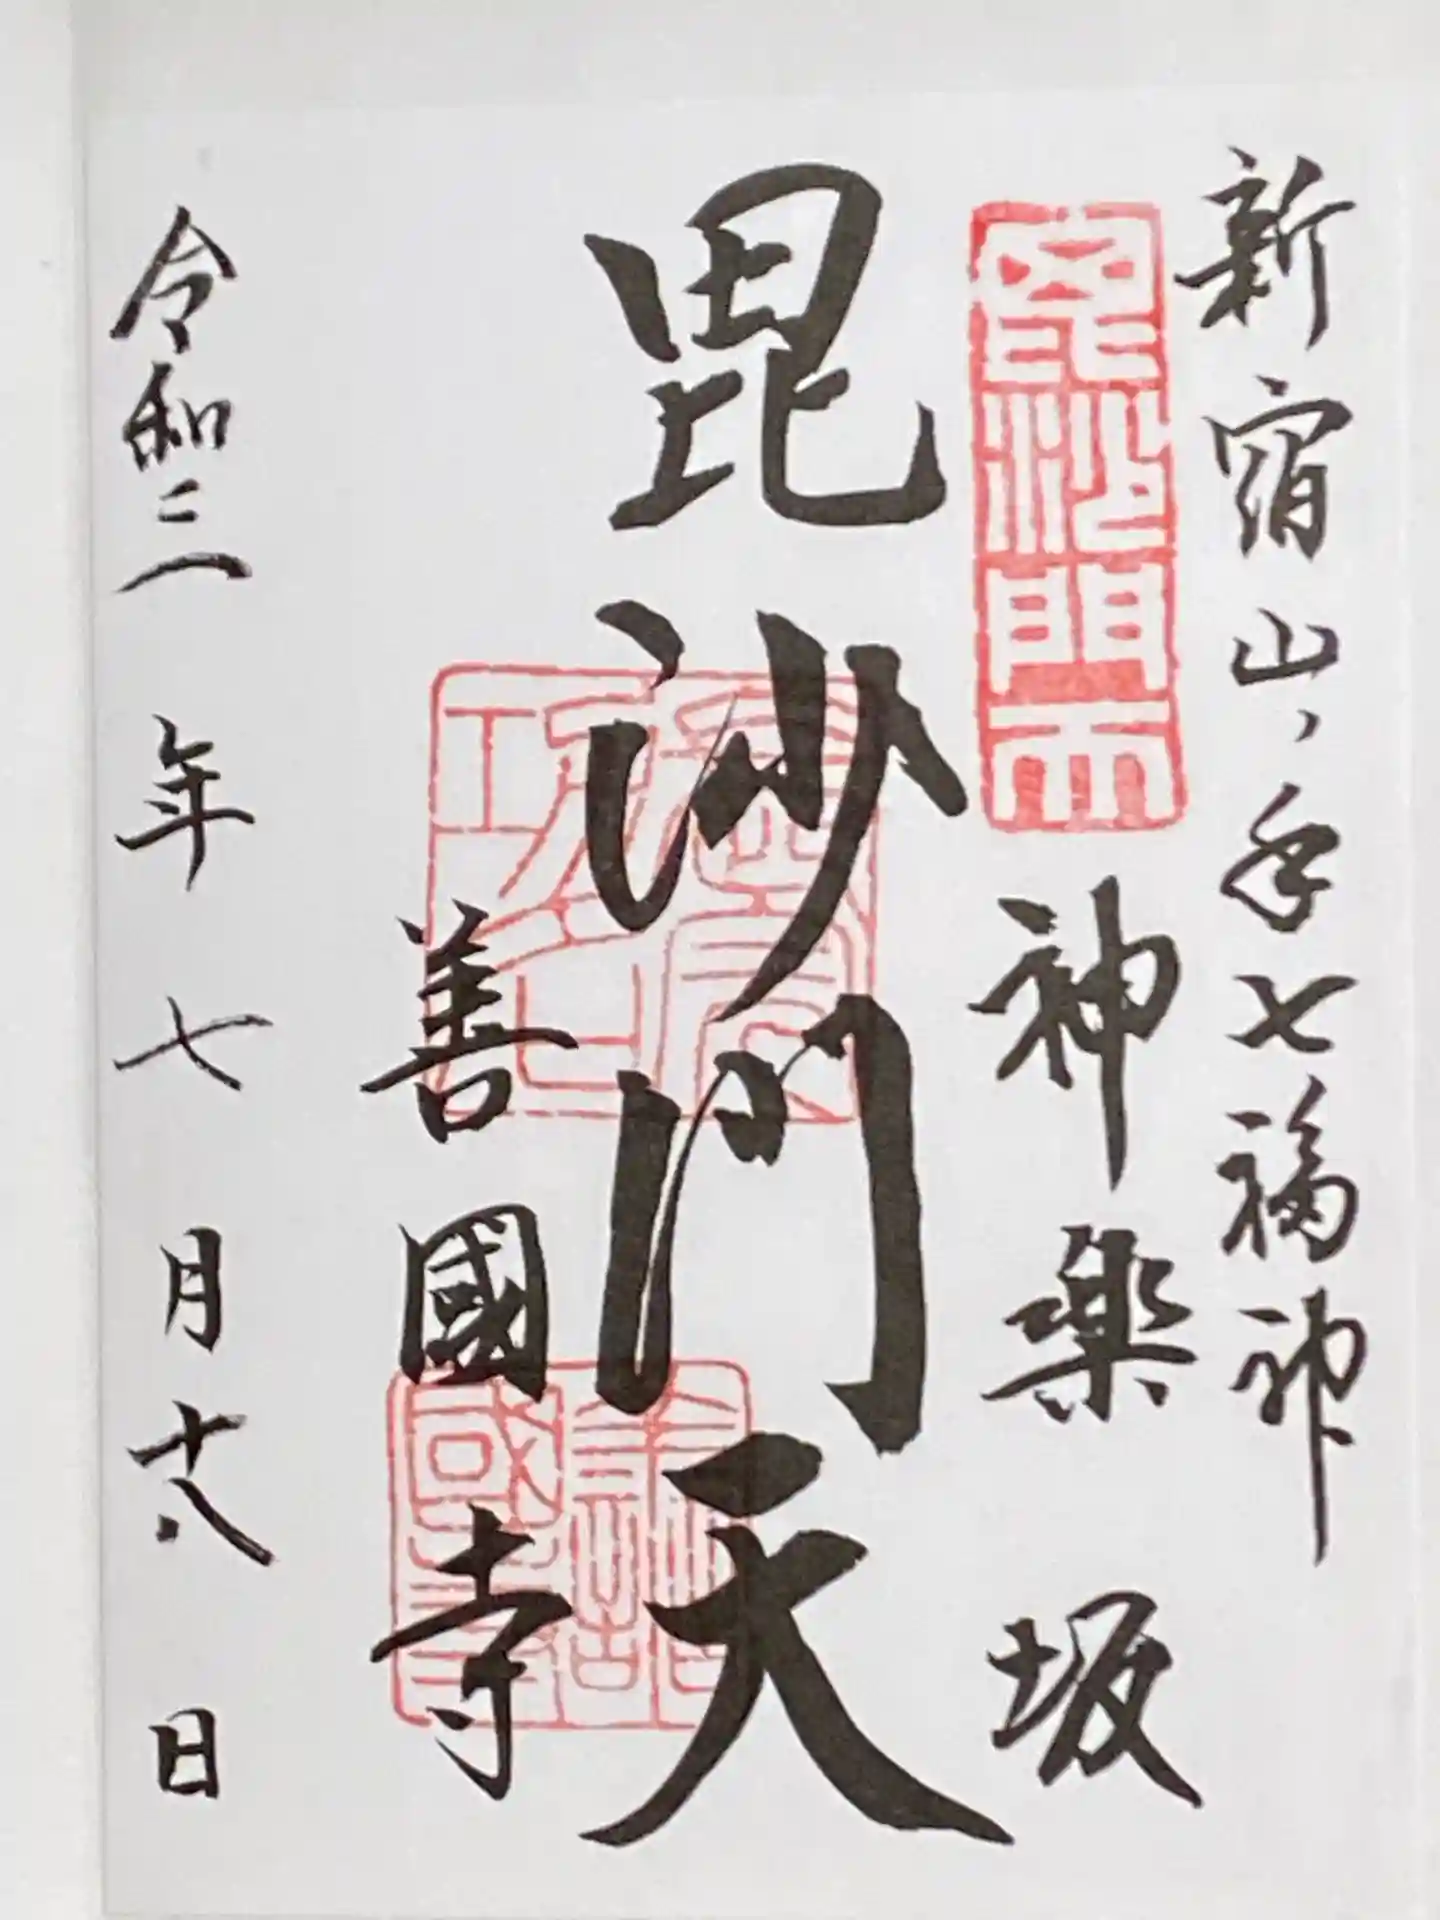 新宿山ノ手七福神
毘沙門天
神楽坂
毘沙門天
善國寺
令和三年七月十八日